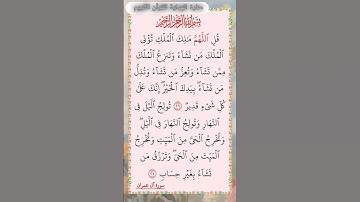 بِسْمِ اللَّهِ الرَّحْمَٰنِ الرَّحِيمِ
قُلِ اللَّهُمَّ مَٰلِكَ الْمُلْكِ تُؤْتِى
الْمُلْكَ مَن تَشَآءُ وَتَنزِعُ الْمُلْكَ
مِمَّن تَشَآءُ وَتُعِزُّ مَن تَشَآءُ وَتُذِلُّ
مَن تَشَآءُ ۖ بِيَدِكَ الْخَيْرُ ۖ إِنَّكَ عَلَىٰ
كُلِّ شَىْءٍ قَدِيرٌ ٢٦ تُولِجُ الَّيْلَ فِى
النَّهَارِ وَتُولِجُ النَّهَارَ فِى الَّيْلِ ۖ
وَتُخْرِجُ الْحَىَّ مِنَ الْمَيِّتِ وَتُخْرِجُ
الْمَيِّتَ مِنَ الْحَىِّ ۖ وَتَرْزُقُ مَن
تَشَآءُ بِغَيْرِ حِسَابٍ ٢٧
سورة آل عمران